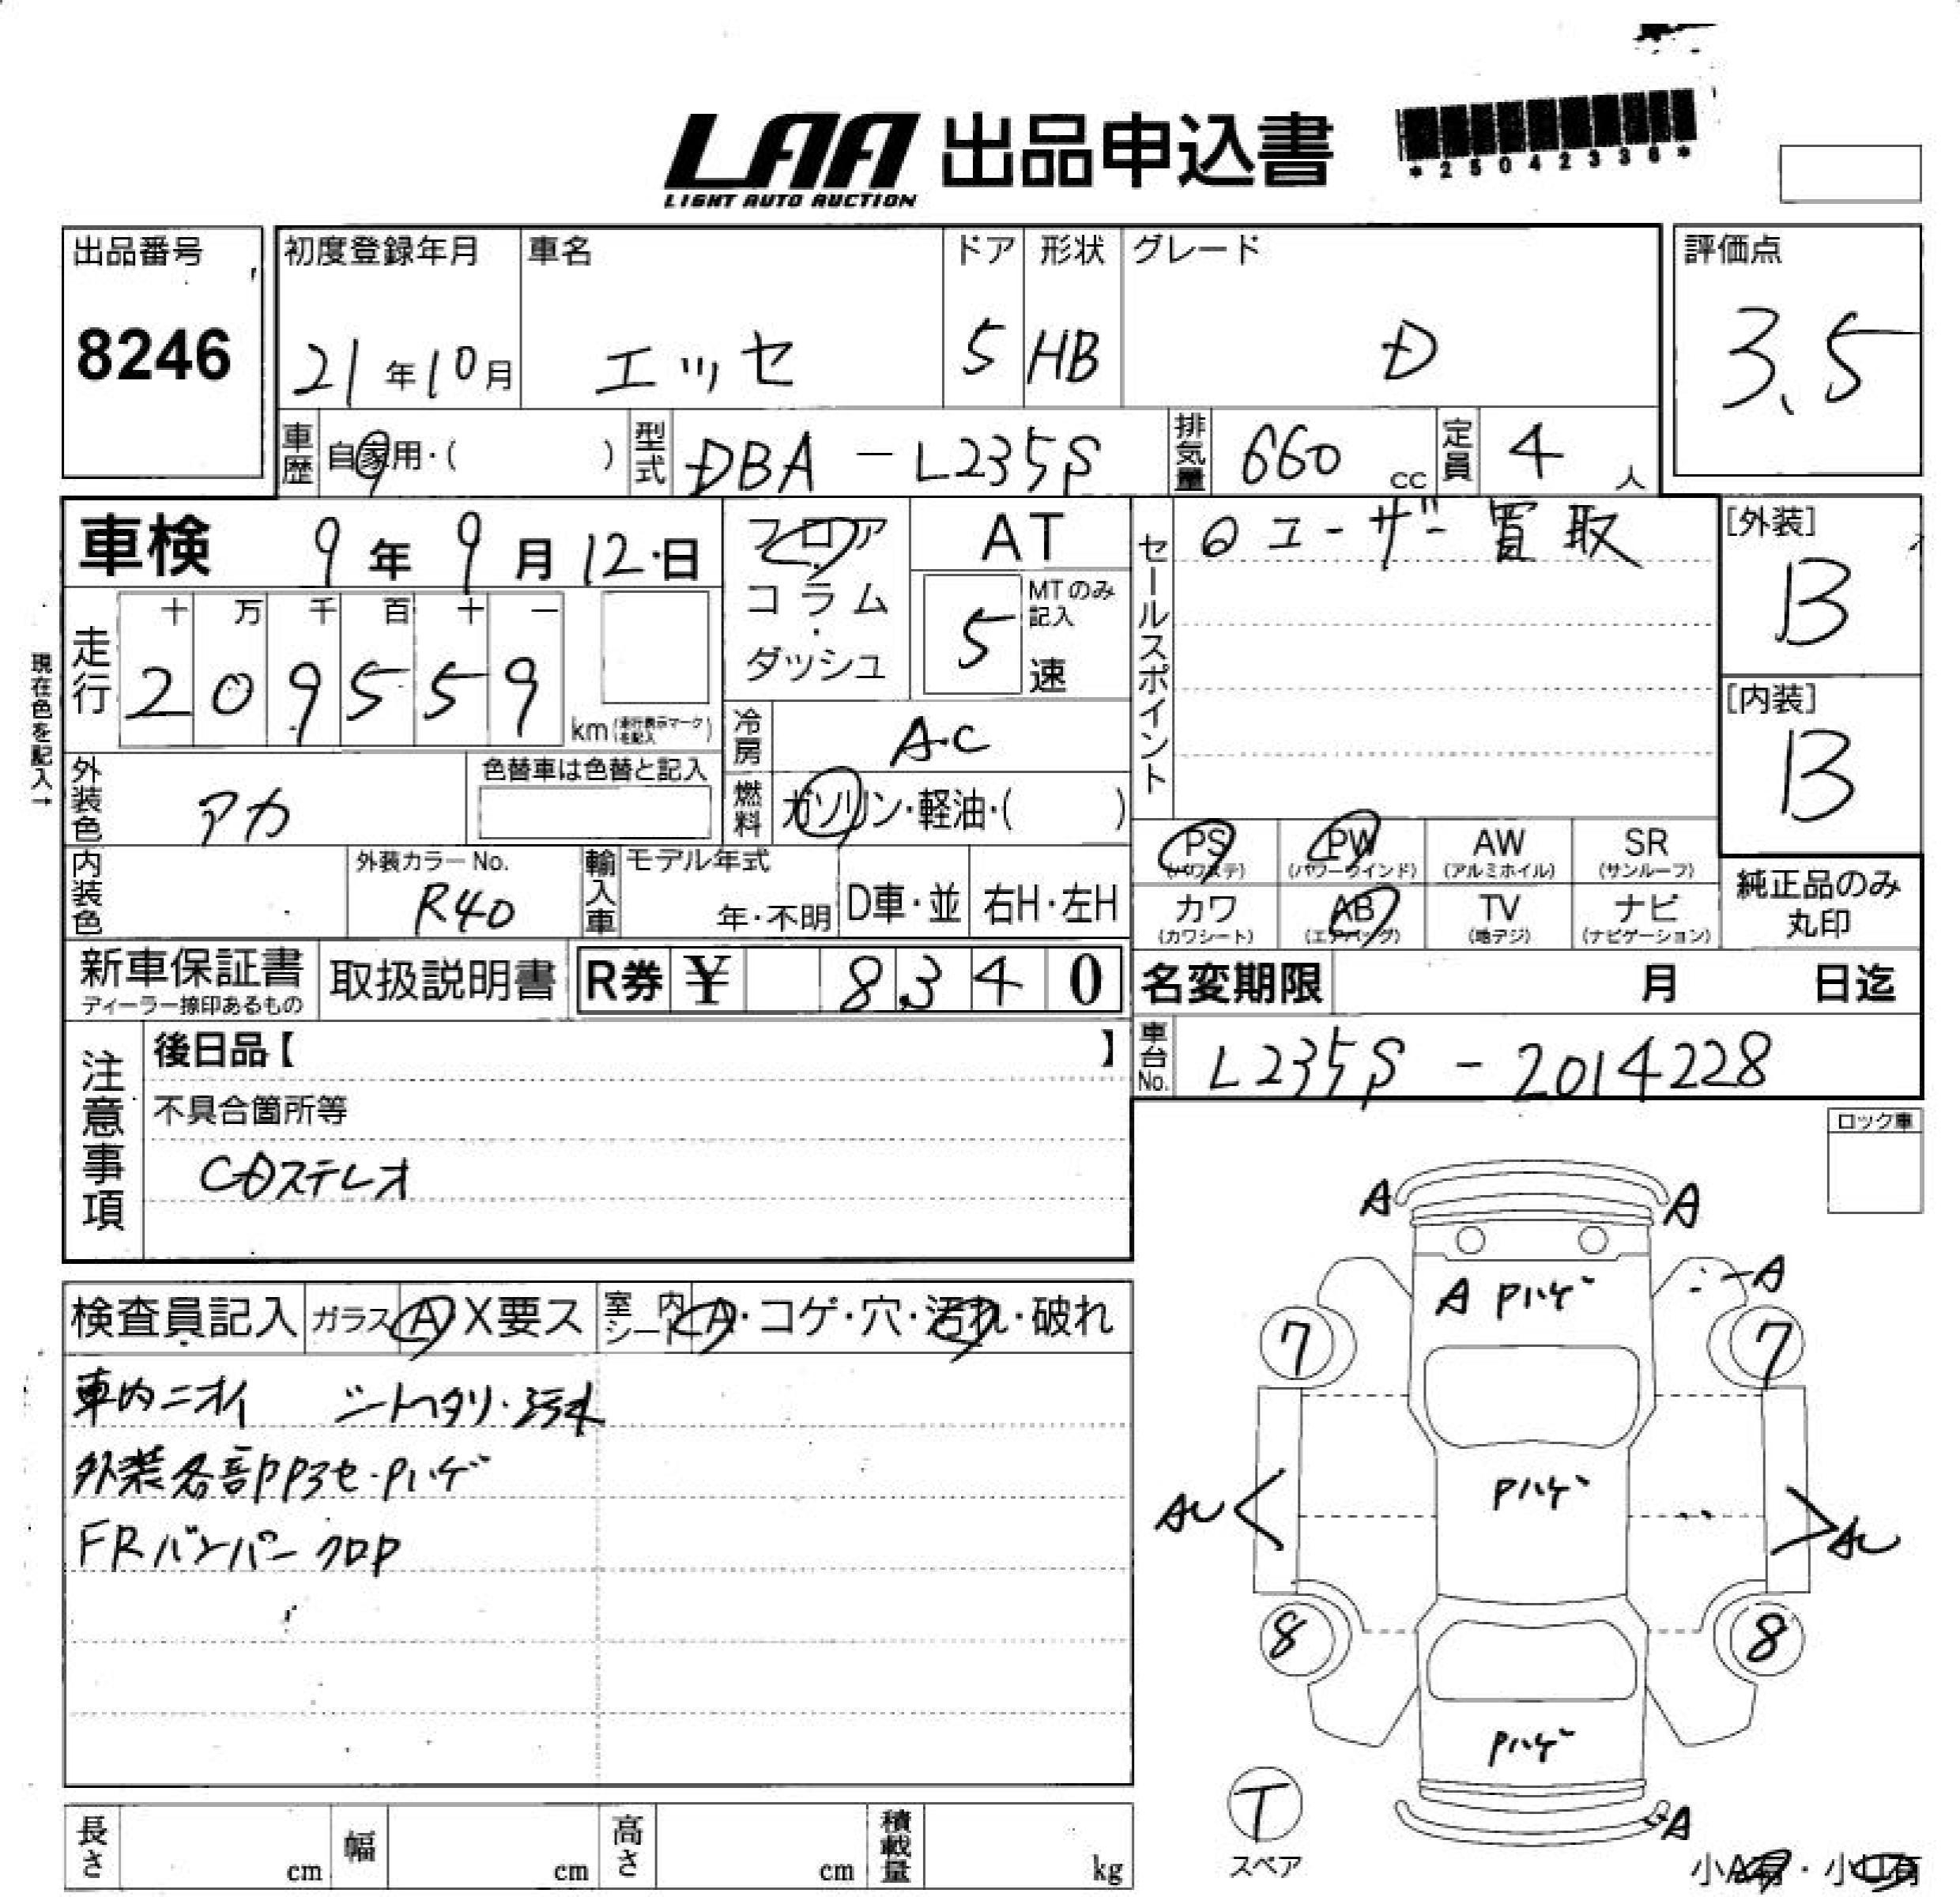 LAA 出品申込書
LIGHT AUTO AUCTION
*25042336*
出品番号
8246
初度登録年月
21年10月
車名
エッセ
ドア
5
形状
HB
グレード
D
評価点
3.5
車歴 自家用・( )
型式 DBA-L235S
排気量 660 cc
定員 4 人
車検 9年9月12日
走行
十 万 千 百 十 一
2 0 9 5 5 9
km (走行表示マークを記入)
現在色を記入→
フロア・コラム・ダッシュ
AT
5
MTのみ記入
速
冷房 A.C
燃料 ガソリン・軽油・( )
セールスポイント
◎ユーザー買取
[外装]
B
[内装]
B
外装色 アカ
色替車は色替と記入
内装色
外装カラーNo.
R40
輸入車
モデル年式
年・不明
D車・並
右H・左H
PS (パワステ)
PW (パワーウインド)
AW (アルミホイル)
SR (サンルーフ)
カワ (カワシート)
AB (エアバッグ)
TV (地デジ)
ナビ (ナビゲーション)
純正品のみ丸印
新車保証書
ディーラー捺印あるもの
取扱説明書
R券 ¥ 8,340
名変期限 月 日迄
車台No. L235S-2014228
注意事項
後日品【 】
不具合箇所等
CDステレオ
ロック車
検査員記入
ガラス A X要ス
室内シート A・コゲ・穴・汚れ・破れ
車内ニオイ シートヘタリ・汚れ
外装各部PアセPハゲ
FRバンパークロP
A A
A Pハゲ A
7 7
Pハゲ
AU AU
8 8
Pハゲ
T
スペア
A
小A有・小U有
長さ cm
幅 cm
高さ cm
積載量 kg